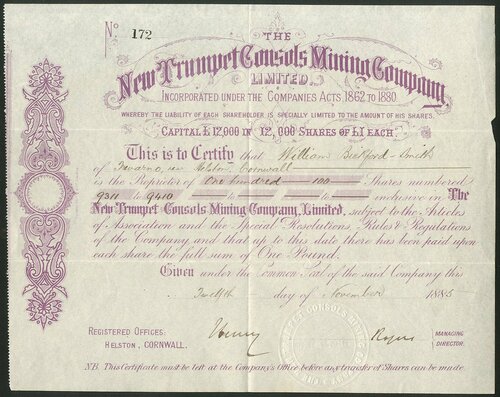 No. 172
THE
New Trumpet Consols Mining Company,
LIMITED.
INCORPORATED UNDER THE COMPANIES ACTS, 1862 TO 1880.
WHEREBY THE LIABILITY OF EACH SHAREHOLDER IS SPECIALLY LIMITED TO THE AMOUNT OF HIS SHARES.
CAPITAL £12,000 IN 12,000 SHARES OF £1 EACH.
This is to Certify that William Bickford-Smith
of Trevarno, near Helston, Cornwall
is the Proprietor of One hundred —100— Shares numbered
9311 to 9410 inclusive in The
New Trumpet Consols Mining Company, Limited, subject to the Articles
of Association and the Special Resolutions, Rules & Regulations
of the Company and that up to this date there has been paid upon
each share the full sum of One Pound.
Given under the Common Seal of the said Company this
Twelfth day of November 1885
REGISTERED OFFICES:
HELSTON, CORNWALL.
Henry Rogers
MANAGING
DIRECTOR.
N.B. This Certificate must be left at the Company's Office before any transfer of Shares can be made.